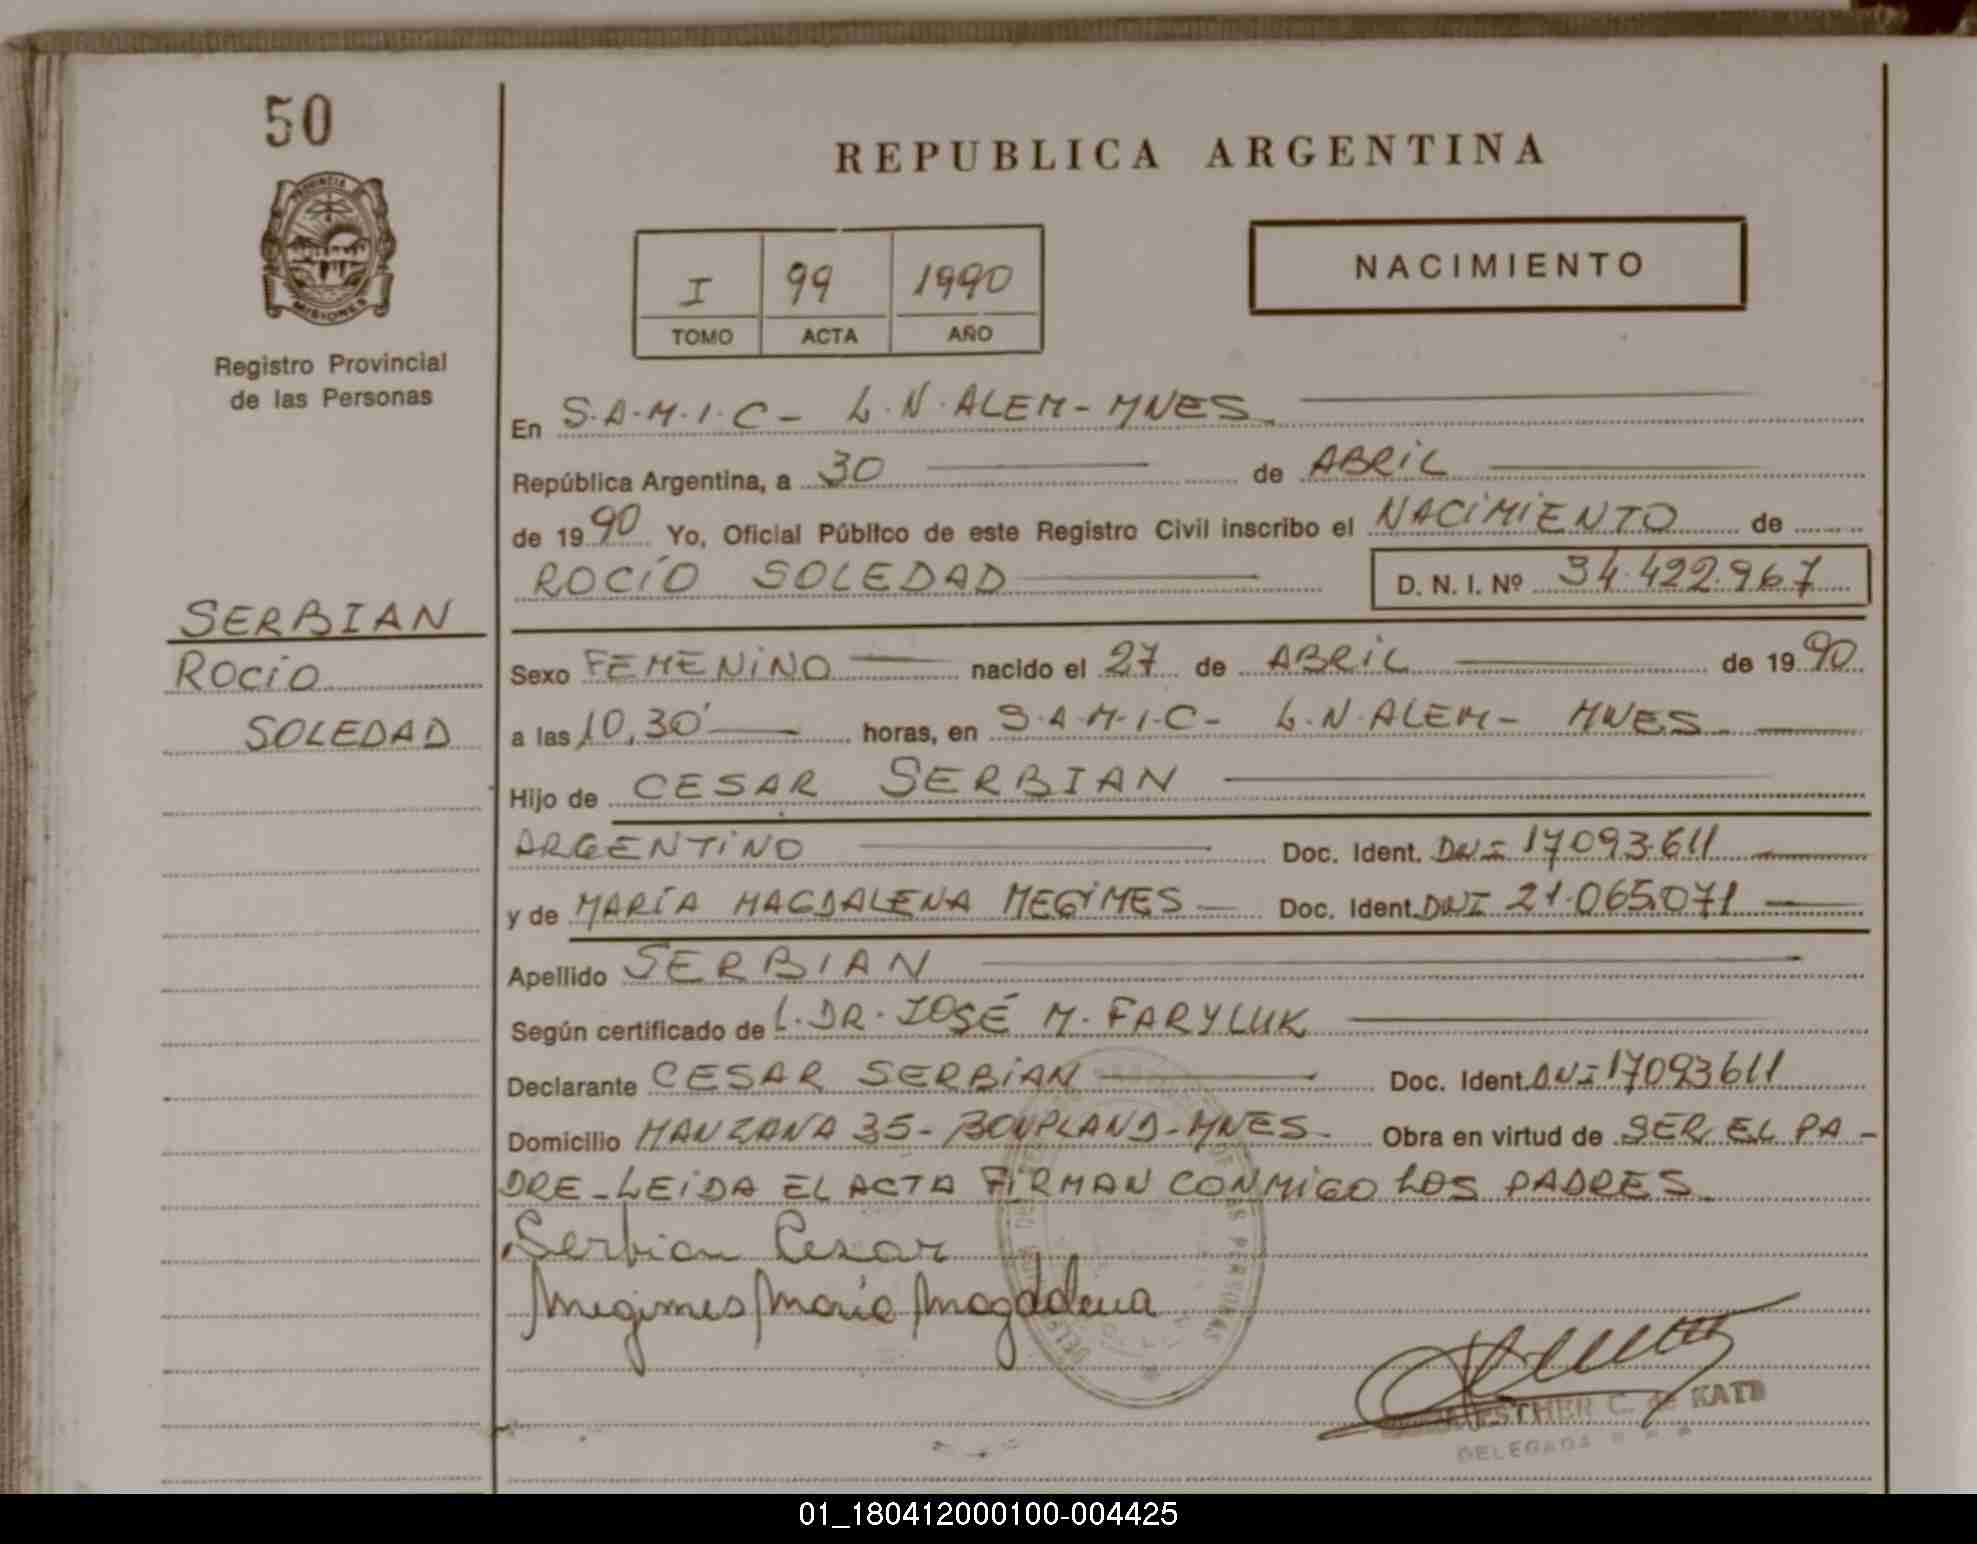 50
PROVINCIA
MISIONES
Registro Provincial
de las Personas
REPUBLICA ARGENTINA
I 99 1990
TOMO ACTA AÑO
NACIMIENTO
En S.A.M.I.C- L.N.ALEM-MNES
República Argentina, a 30 de ABRIL
de 1990 Yo, Oficial Público de este Registro Civil inscribo el NACIMIENTO de
ROCÍO SOLEDAD D. N. I. Nº 34.422.967
SERBIAN
ROCIO
SOLEDAD
Sexo FEMENINO nacido el 27 de ABRIL de 1990
a las 10,30' horas, en S.A.M.I.C- L.N.ALEM- MNES
Hijo de CESAR SERBIAN
ARGENTINO Doc. Ident. DNI 17093611
y de MARÍA MAGDALENA MEGIMES Doc. Ident. DNI 21.065.071
Apellido SERBIAN
Según certificado de L.DR.JOSÉ M. FARYLUK
Declarante CESAR SERBIAN Doc. Ident. DNI 17093611
Domicilio MANZANA 35-BONPLAND-MNES- Obra en virtud de SER EL PA-
DRE-LEIDA EL ACTA FIRMAN CONMIGO LOS PADRES
Serbian Cesar
Megimes María Magdalena
ESTHER C. de KATD
DELEGADA
01_180412000100-004425